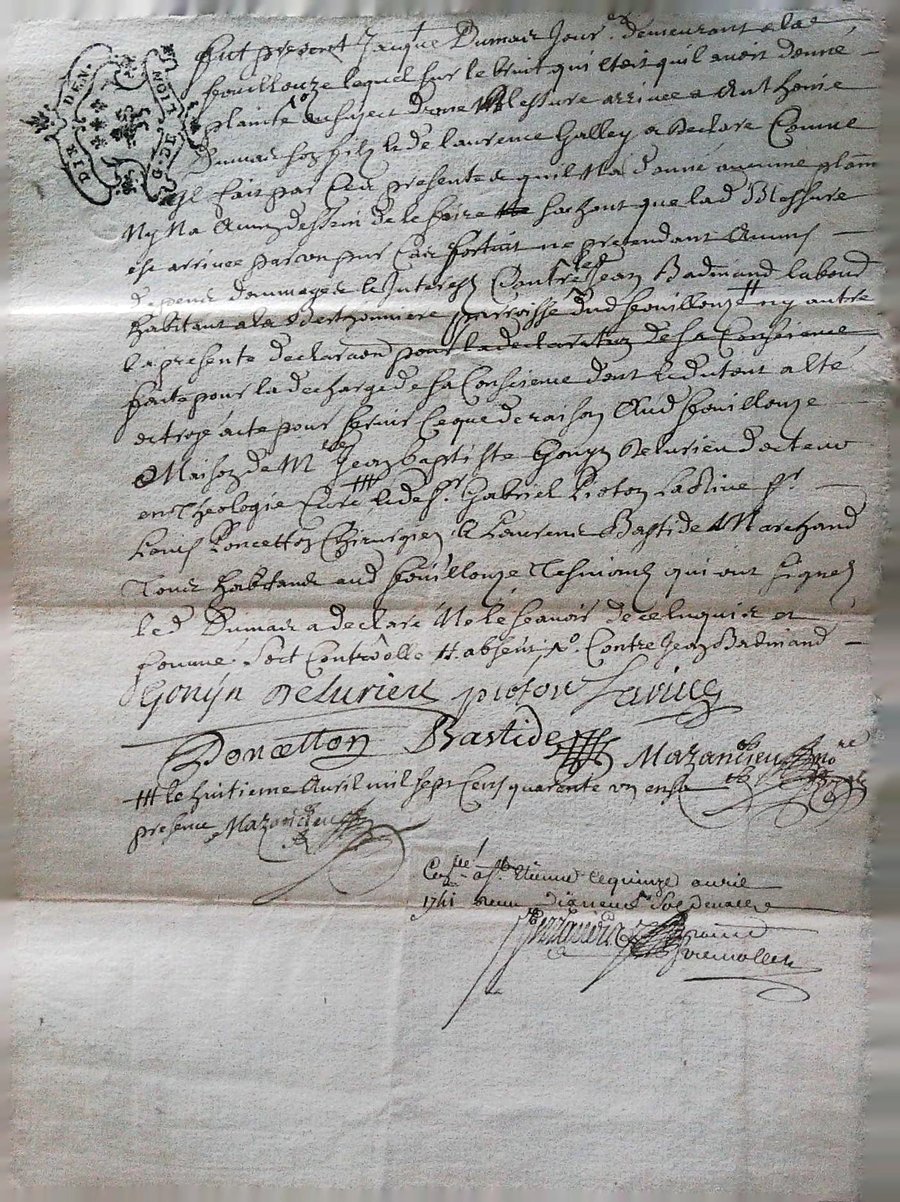 DIX DEN.
G. DE LION
fut present Jacque Dumas Jour.er demeurant a la
fouillouze lequel sur le bruit qui étoit quil avoit donné
plainte au suject d'une blessure arrivee a Anthoine
Dumas son fils & de laurence Galley, a declaré Comme
Il fait par Ces presentes quil N'a donné aucune plainte
Ny N'a Aucun dessein de le faire sachant que lad Blessure
est arrivee par un pur Cas fortuit ne pretendant Aucuns
depens dommages & Interests Contre led Jean Badinand laboud
habitant a la parroisse dud fouillouze ny autre
la presente declaraon pour la declaration de sa Consience
faite pour la decharge de sa Consience dont & du tout a été
octroyé acte pour servir Ce que de raison Aud fouillouze
Maison de M.re Jean baptiste Gonyn Delurieu docteur
en Theologie Curé & de s.r Gabriel Pioton Lavine s.r
Louis Poncetton Chirurgien & Laurens Bastide Marchand
Tous habitans aud fouillouze Tesmoins qui ont signés
led Dumas a declaré Ne le sçavoir de ce enquis et
sommé. Soit Controlle absent Contre Jean Badinand
Gonyn Delurieu pioton Lavine
Poncetton Bastide Mazandieu no.re
le huitieme Avril mil sept Cens quarente un en sa
presence Mazandieu
Con.lé a S.t Etienne le quinze avril
1741 recu